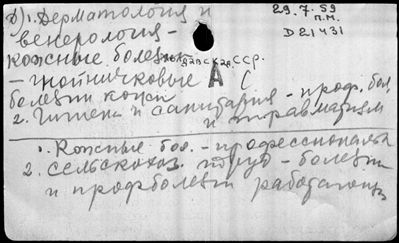 д) 1. Дерматология и
венерология -
кожные болезни
ССР.
29.7.59
п.м.
D21431
- гнойничковые А С
болезни кожи
2. Гигиена и санитария - проф. бол.
и травматизм
1. Кожные бол. - профессиональн
2. сельскохоз. труд - болезни
и профболезни работающих